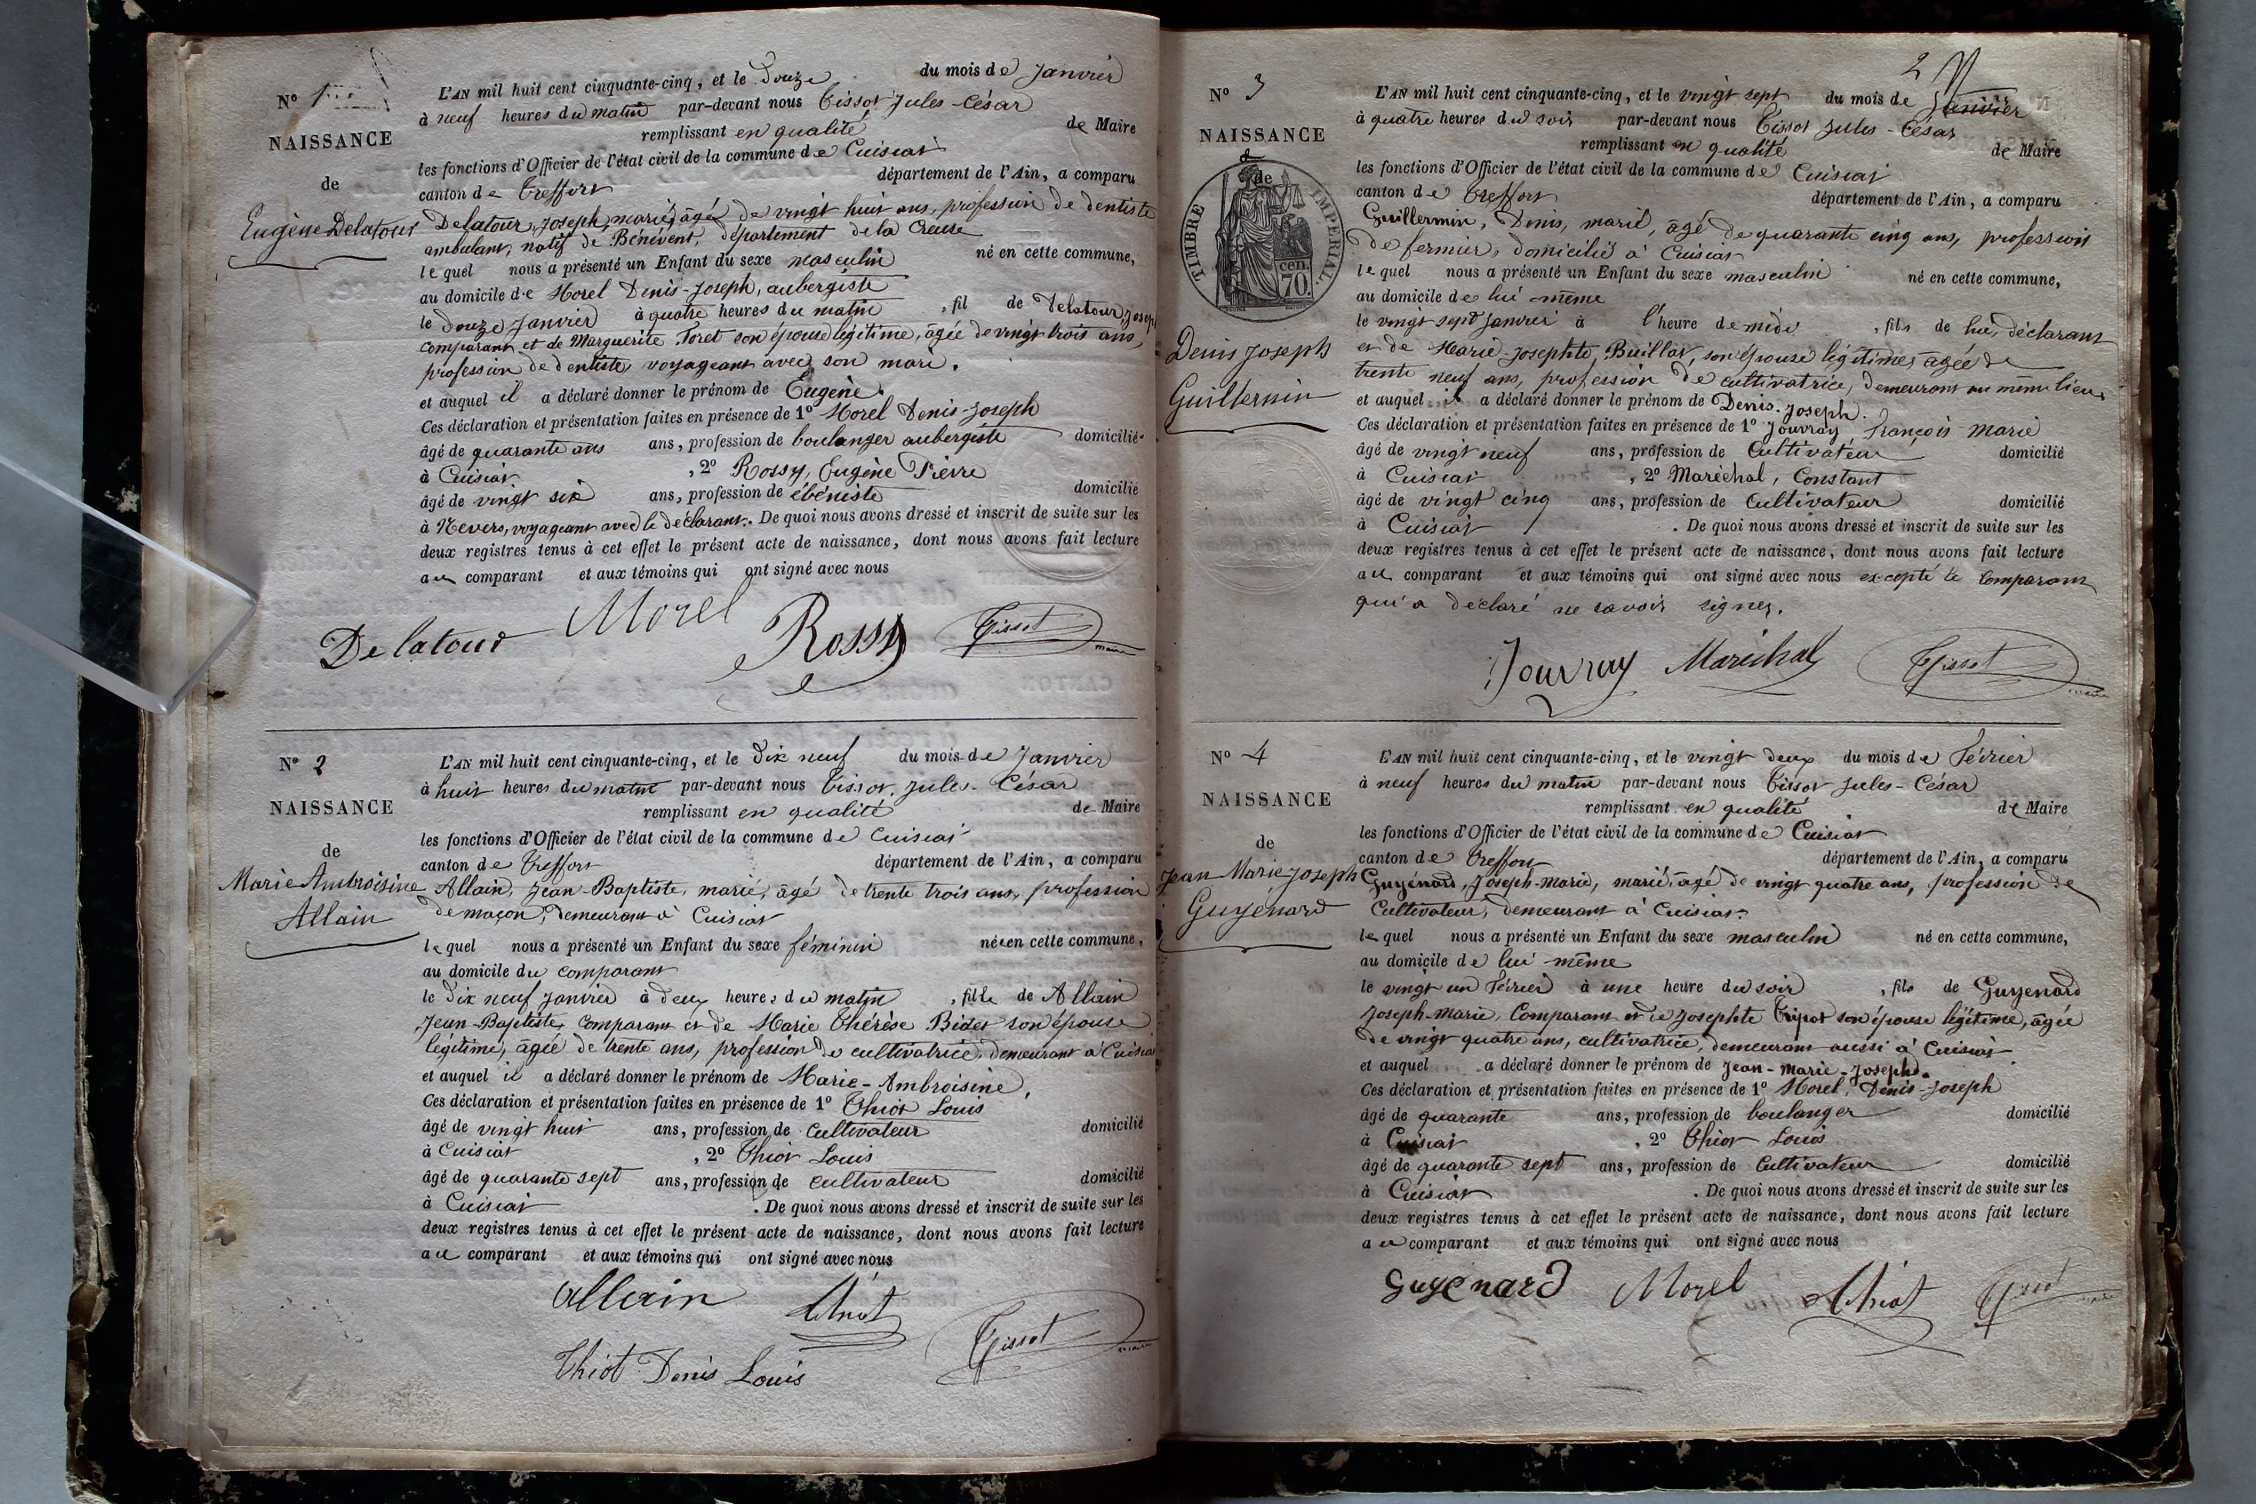 N° 1
NAISSANCE
de
Eugène Delatour
L'AN mil huit cent cinquante-cinq, et le Douze du mois de Janvier
à neuf heures du matin par-devant nous Tissot Jules-César
remplissant en qualité de Maire
les fonctions d'Officier de l'état civil de la commune de Cuisiat
canton de Treffort département de l'Ain, a comparu
Delatour, Joseph, marié, âgé de vingt huit ans, profession de dentiste
ambulant, natif de Bénévent, département de la Creuse
lequel nous a présenté un Enfant du sexe masculin né en cette commune,
au domicile de Morel Denis-Joseph, aubergiste
le douze Janvier à quatre heures du matin, fil de Delatour, Joseph
comparant et de Marguerite Foret son épouse légitime, âgée de vingt trois ans,
profession de dentiste, voyageant avec son mari.
et auquel il a déclaré donner le prénom de Eugène.
Ces déclaration et présentation faites en présence de 1° Morel Denis-Joseph
âgé de quarante ans ans, profession de boulanger aubergiste domicilié
à Cuisiat, 2° Rossy, Eugène Pierre
âgé de vingt six ans, profession de ébéniste domicilié
à Nevers, voyageant avec le déclarant. De quoi nous avons dressé et inscrit de suite sur les
deux registres tenus à cet effet le présent acte de naissance, dont nous avons fait lecture
au comparant et aux témoins qui ont signé avec nous
Delatour Morel Rossy Tissot maire
N° 2
NAISSANCE
de
Marie Ambroisine
Allain
L'AN mil huit cent cinquante-cinq, et le Dix neuf du mois de Janvier
à huit heures du matin par-devant nous Tissot, Jules-César
remplissant en qualité de Maire
les fonctions d'Officier de l'état civil de la commune de Cuisiat
canton de Treffort département de l'Ain, a comparu
Allain, Jean-Baptiste, marié, âgé de trente trois ans, profession
de maçon, demeurant à Cuisiat
lequel nous a présenté un Enfant du sexe féminin née en cette commune,
au domicile du comparant
le Dix neuf Janvier à deux heures du matin, fille de Allain
Jean-Baptiste, comparant et de Marie Thérèse Bidet son épouse
légitime, âgée de trente ans, profession de cultivatrice, demeurant à Cuisiat
et auquel il a déclaré donner le prénom de Marie-Ambroisine,
Ces déclaration et présentation faites en présence de 1° Thiot Louis
âgé de vingt huit ans, profession de cultivateur domicilié
à Cuisiat, 2° Thiot Louis
âgé de quarante sept ans, profession de cultivateur domicilié
à Cuisiat. De quoi nous avons dressé et inscrit de suite sur les
deux registres tenus à cet effet le présent acte de naissance, dont nous avons fait lecture
au comparant et aux témoins qui ont signé avec nous
Allain Thiot
Thiot Denis Louis Tissot maire
2
N° 3
NAISSANCE
de
TIMBRE IMPERIAL.
70 cen.
Denis Joseph
Guillermin
L'AN mil huit cent cinquante-cinq, et le vingt sept du mois de Janvier
à quatre heures du soir par-devant nous Tissot Jules-César
remplissant en qualité de Maire
les fonctions d'Officier de l'état civil de la commune de Cuisiat
canton de Treffort département de l'Ain, a comparu
Guillermin, Denis, marié, âgé de quarante cinq ans, profession
de fermier, domicilié à Cuisiat
lequel nous a présenté un Enfant du sexe masculin né en cette commune,
au domicile de lui même
le vingt sept Janvier à l'heure de midi, fils de lui, déclarant
et de Marie-Josephte Buillat, son épouse légitime, âgée de
trente neuf ans, profession de cultivatrice, demeurant au même lieu,
et auquel il a déclaré donner le prénom de Denis-Joseph.
Ces déclaration et présentation faites en présence de 1° Jouvray François Marie
âgé de vingt neuf ans, profession de Cultivateur domicilié
à Cuisiat, 2° Maréchal, Constant
âgé de vingt cinq ans, profession de Cultivateur domicilié
à Cuisiat. De quoi nous avons dressé et inscrit de suite sur les
deux registres tenus à cet effet le présent acte de naissance, dont nous avons fait lecture
au comparant et aux témoins qui ont signé avec nous excepté le comparant
qui a déclaré ne savoir signer.
Jouvray Maréchal Tissot maire
N° 4
NAISSANCE
de
Jean Marie Joseph
Guyénard
L'AN mil huit cent cinquante-cinq, et le vingt deux du mois de Février
à neuf heures du matin par-devant nous Tissot Jules-César
remplissant en qualité de Maire
les fonctions d'Officier de l'état civil de la commune de Cuisiat
canton de Treffort département de l'Ain, a comparu
Guyénard, Joseph-Marie, marié, âgé de vingt quatre ans, profession de
Cultivateur, demeurant à Cuisiat.
lequel nous a présenté un Enfant du sexe masculin né en cette commune,
au domicile de lui même
le vingt un Février à une heure du soir, fils de Guyenard
Joseph-Marie, Comparant et de Josephte Tripot son épouse légitime, âgée
de vingt quatre ans, cultivatrice, demeurant aussi à Cuisiat
et auquel a déclaré donner le prénom de Jean-Marie-Joseph.
Ces déclaration et présentation faites en présence de 1° Morel, Denis-Joseph
âgé de quarante ans, profession de boulanger domicilié
à Cuisiat, 2° Thiot Louis
âgé de quarante sept ans, profession de Cultivateur domicilié
à Cuisiat. De quoi nous avons dressé et inscrit de suite sur les
deux registres tenus à cet effet le présent acte de naissance, dont nous avons fait lecture
au comparant et aux témoins qui ont signé avec nous
Guyénard Morel Thiot Tissot maire